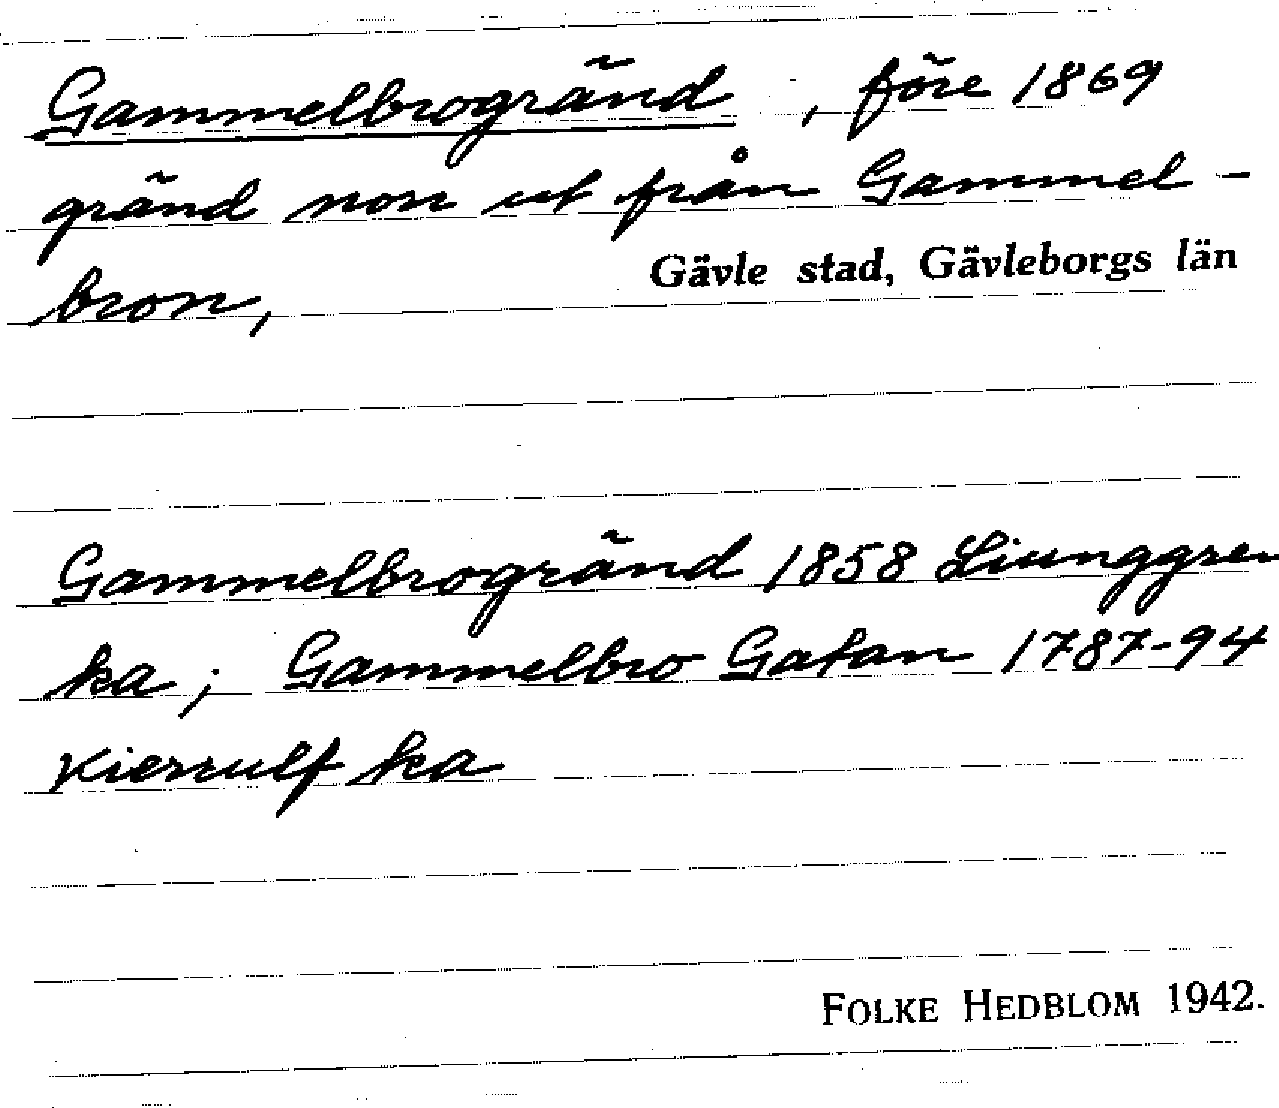 Gammelbrogränd , före 1869
gränd norr ut från Gammel-
bron,
Gävle stad, Gävleborgs län
Gammelbrogränd 1858 Liunggren
ka; Gammelbro Gatan 1787-94
Kierrulf ka
FOLKE HEDBLOM 1942.